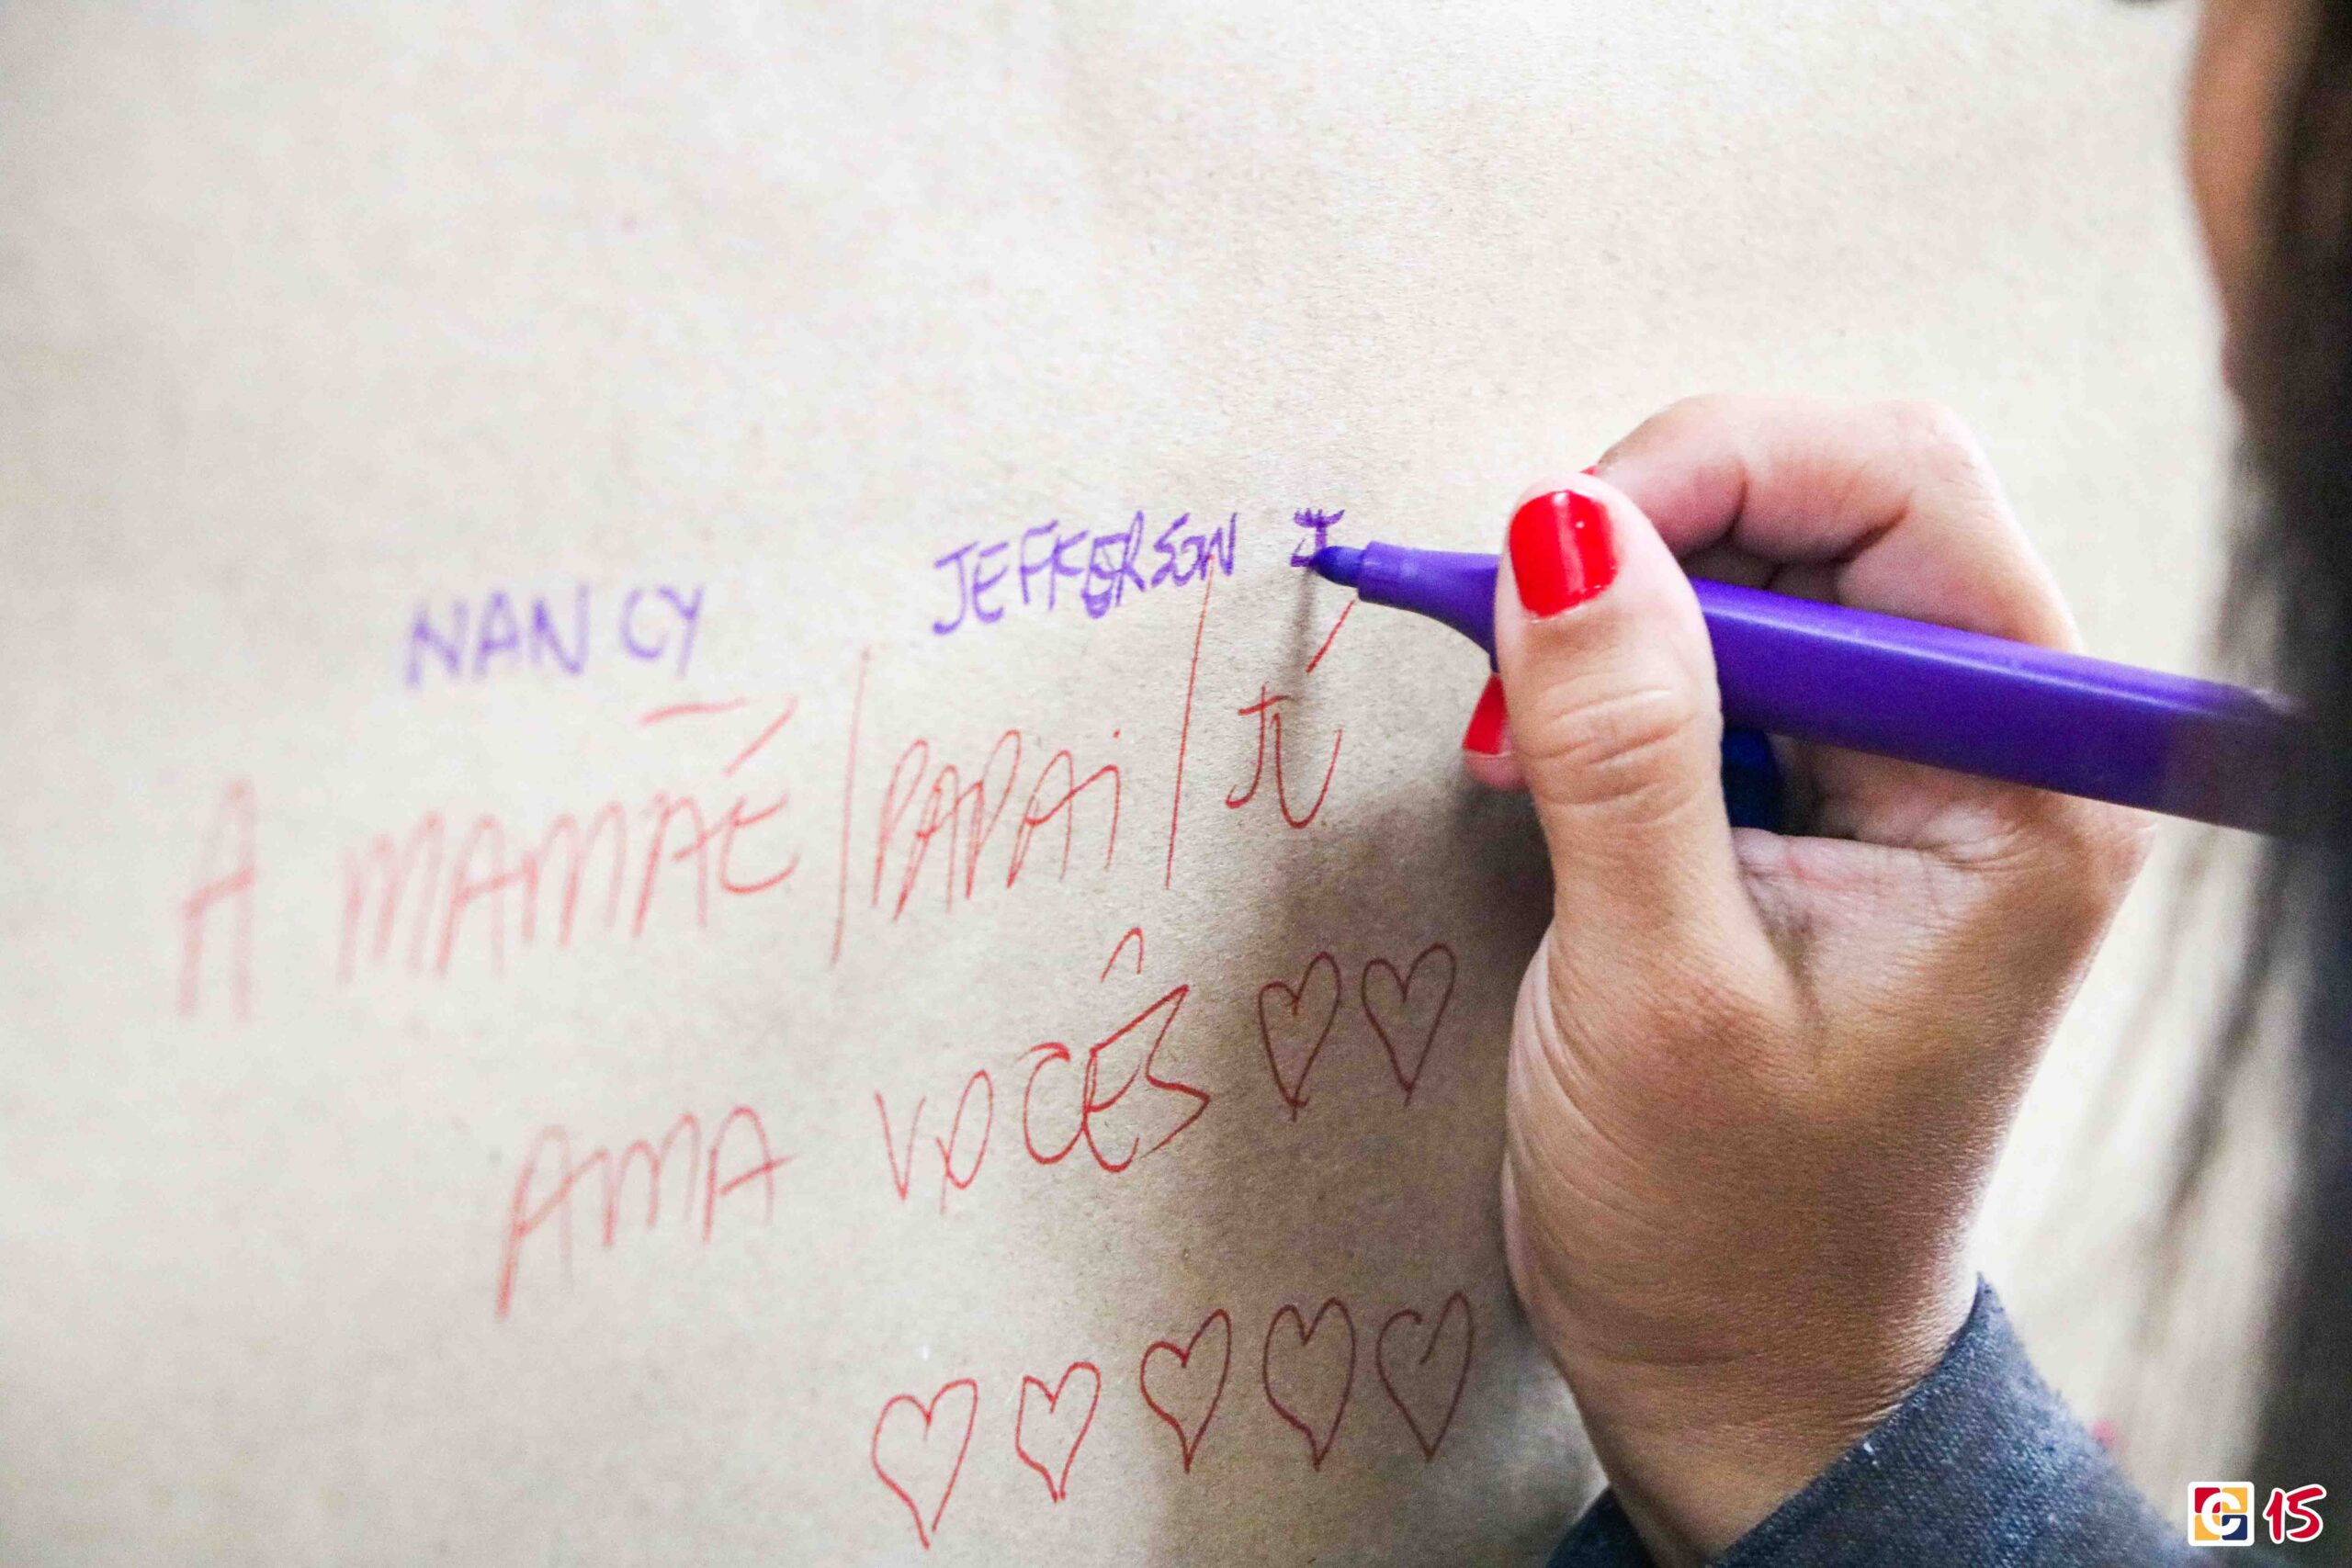 NANCY JEFFERSON J
A MAMÃE/PAPAI/JÚ
AMA VOCÊS ♡♡
♡♡♡♡♡
C 15